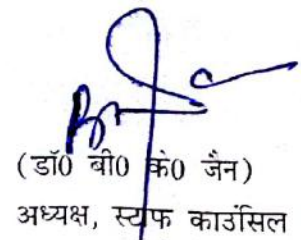 (डॉ0 बी0 के0 जैन)
अध्यक्ष, स्टाफ काउंसिल